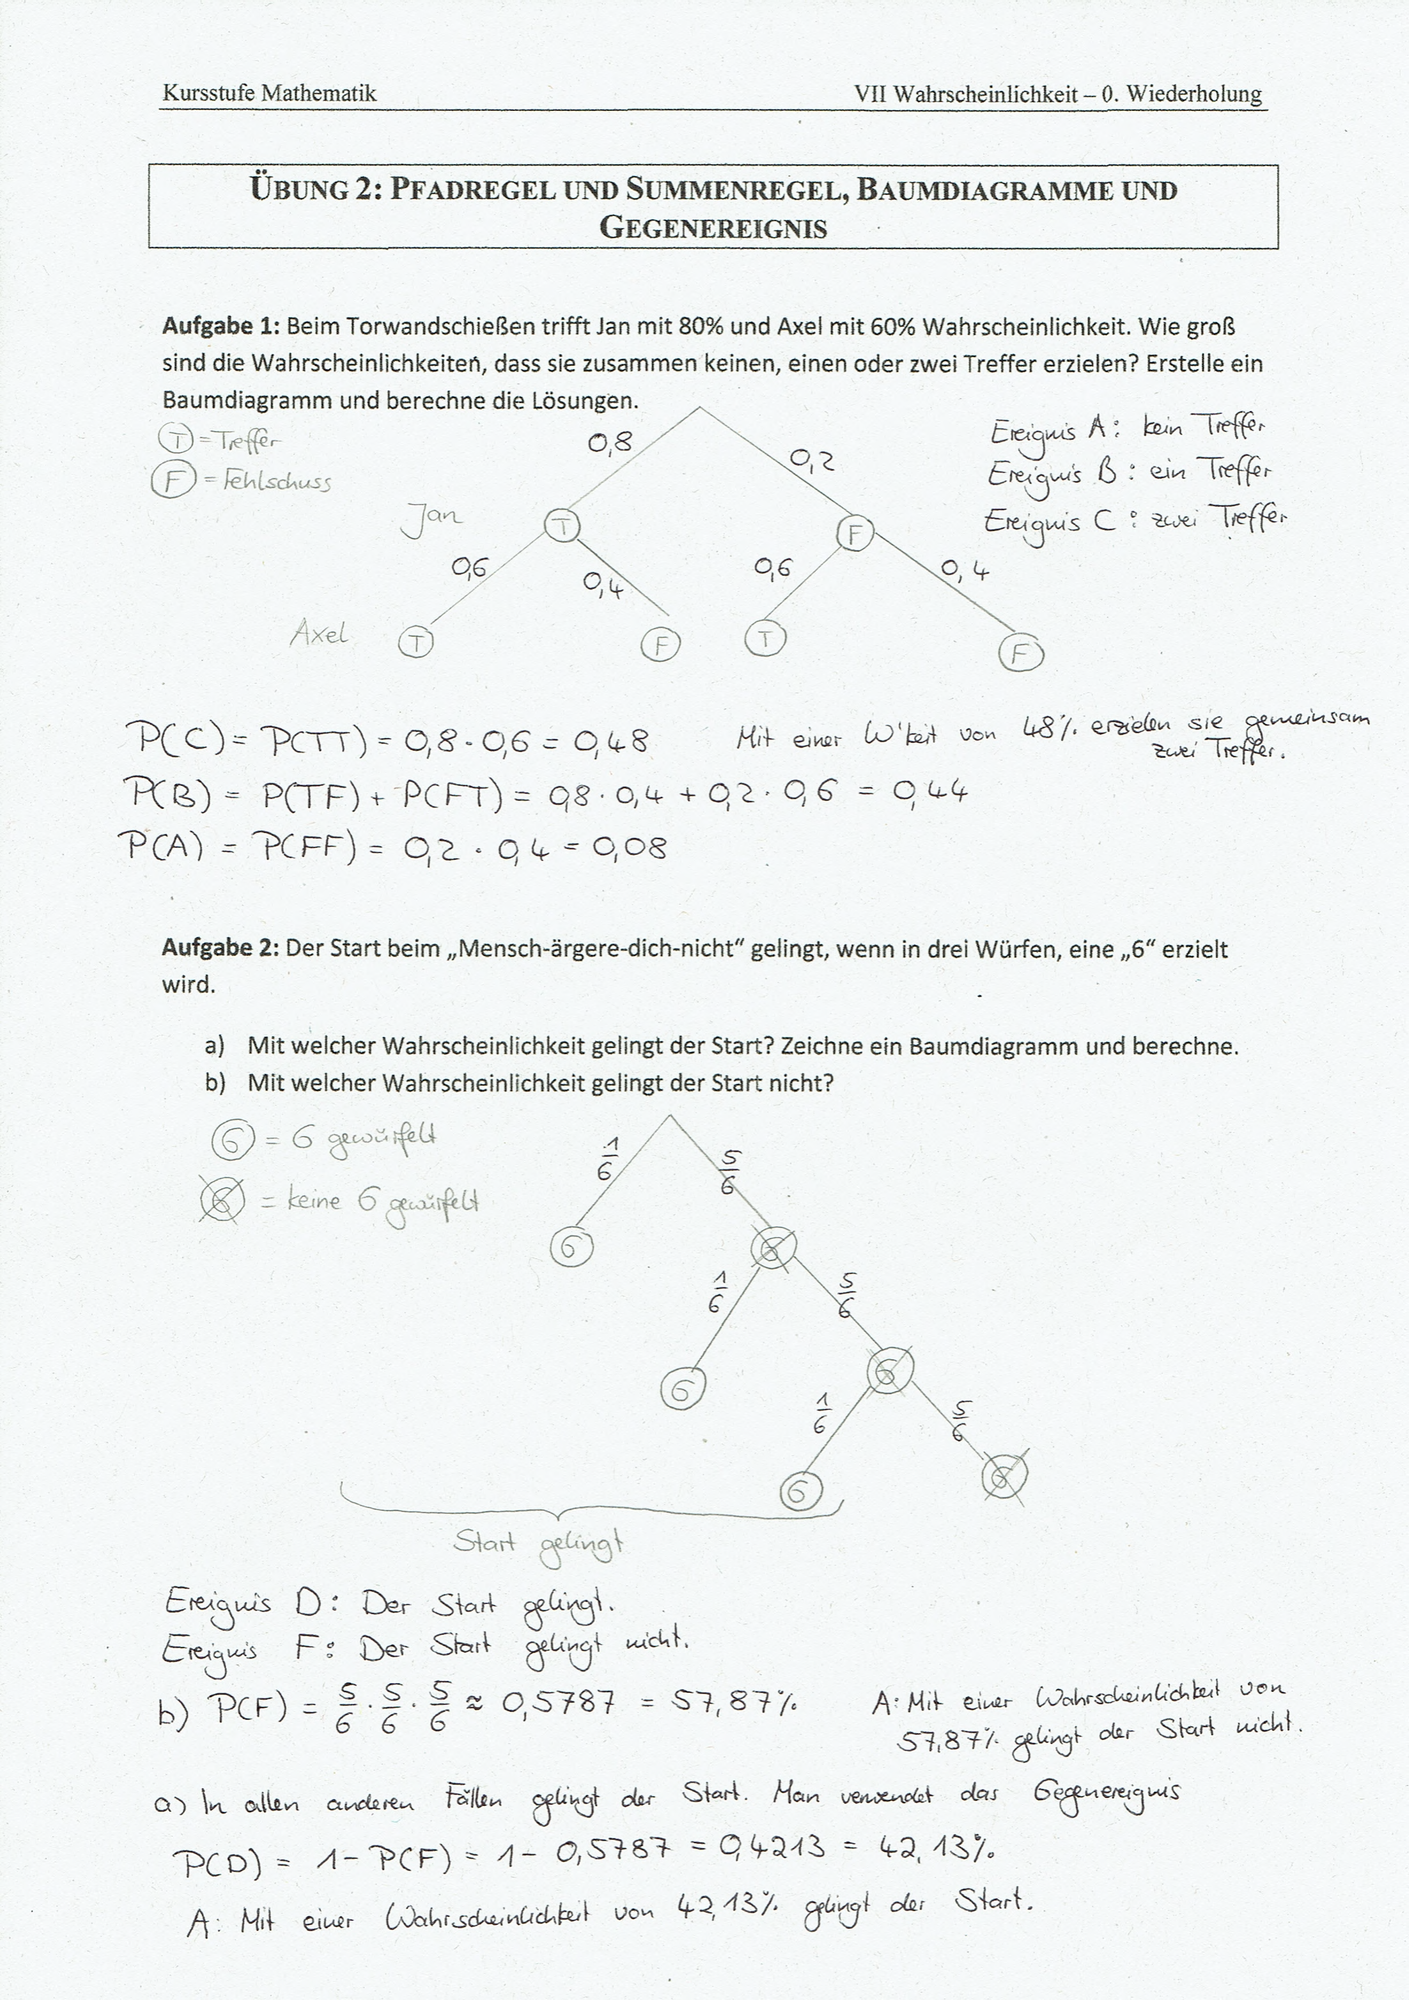 Kursstufe Mathematik VII Wahrscheinlichkeit – 0. Wiederholung
ÜBUNG 2: PFADREGEL UND SUMMENREGEL, BAUMDIAGRAMME UND
GEGENEREIGNIS
Aufgabe 1: Beim Torwandschießen trifft Jan mit 80% und Axel mit 60% Wahrscheinlichkeit. Wie groß
sind die Wahrscheinlichkeiten, dass sie zusammen keinen, einen oder zwei Treffer erzielen? Erstelle ein
Baumdiagramm und berechne die Lösungen.
T = Treffer
F = Fehlschuss
0,8 0,2
Ereignis A: kein Treffer
Ereignis B: ein Treffer
Ereignis C: zwei Treffer
Jan T F
0,6 0,4 0,6 0,4
Axel T F T F
P(C) = P(TT) = 0,8 · 0,6 = 0,48 Mit einer W'keit von 48% erzielen sie gemeinsam
zwei Treffer.
P(B) = P(TF) + P(FT) = 0,8 · 0,4 + 0,2 · 0,6 = 0,44
P(A) = P(FF) = 0,2 · 0,4 = 0,08
Aufgabe 2: Der Start beim „Mensch-ärgere-dich-nicht“ gelingt, wenn in drei Würfen, eine „6“ erzielt
wird.
a) Mit welcher Wahrscheinlichkeit gelingt der Start? Zeichne ein Baumdiagramm und berechne.
b) Mit welcher Wahrscheinlichkeit gelingt der Start nicht?
6 = 6 gewürfelt
6 = keine 6 gewürfelt
1/6 5/6
6 6
1/6 5/6
6 6
1/6 5/6
6 6
Start gelingt
Ereignis D: Der Start gelingt.
Ereignis F: Der Start gelingt nicht.
b) P(F) = 5/6 · 5/6 · 5/6 ≈ 0,5787 = 57,87% A: Mit einer Wahrscheinlichkeit von
57,87% gelingt der Start nicht.
a) In allen anderen Fällen gelingt der Start. Man verwendet das Gegenereignis
P(D) = 1 – P(F) = 1 – 0,5787 = 0,4213 = 42,13%.
A: Mit einer Wahrscheinlichkeit von 42,13% gelingt der Start.